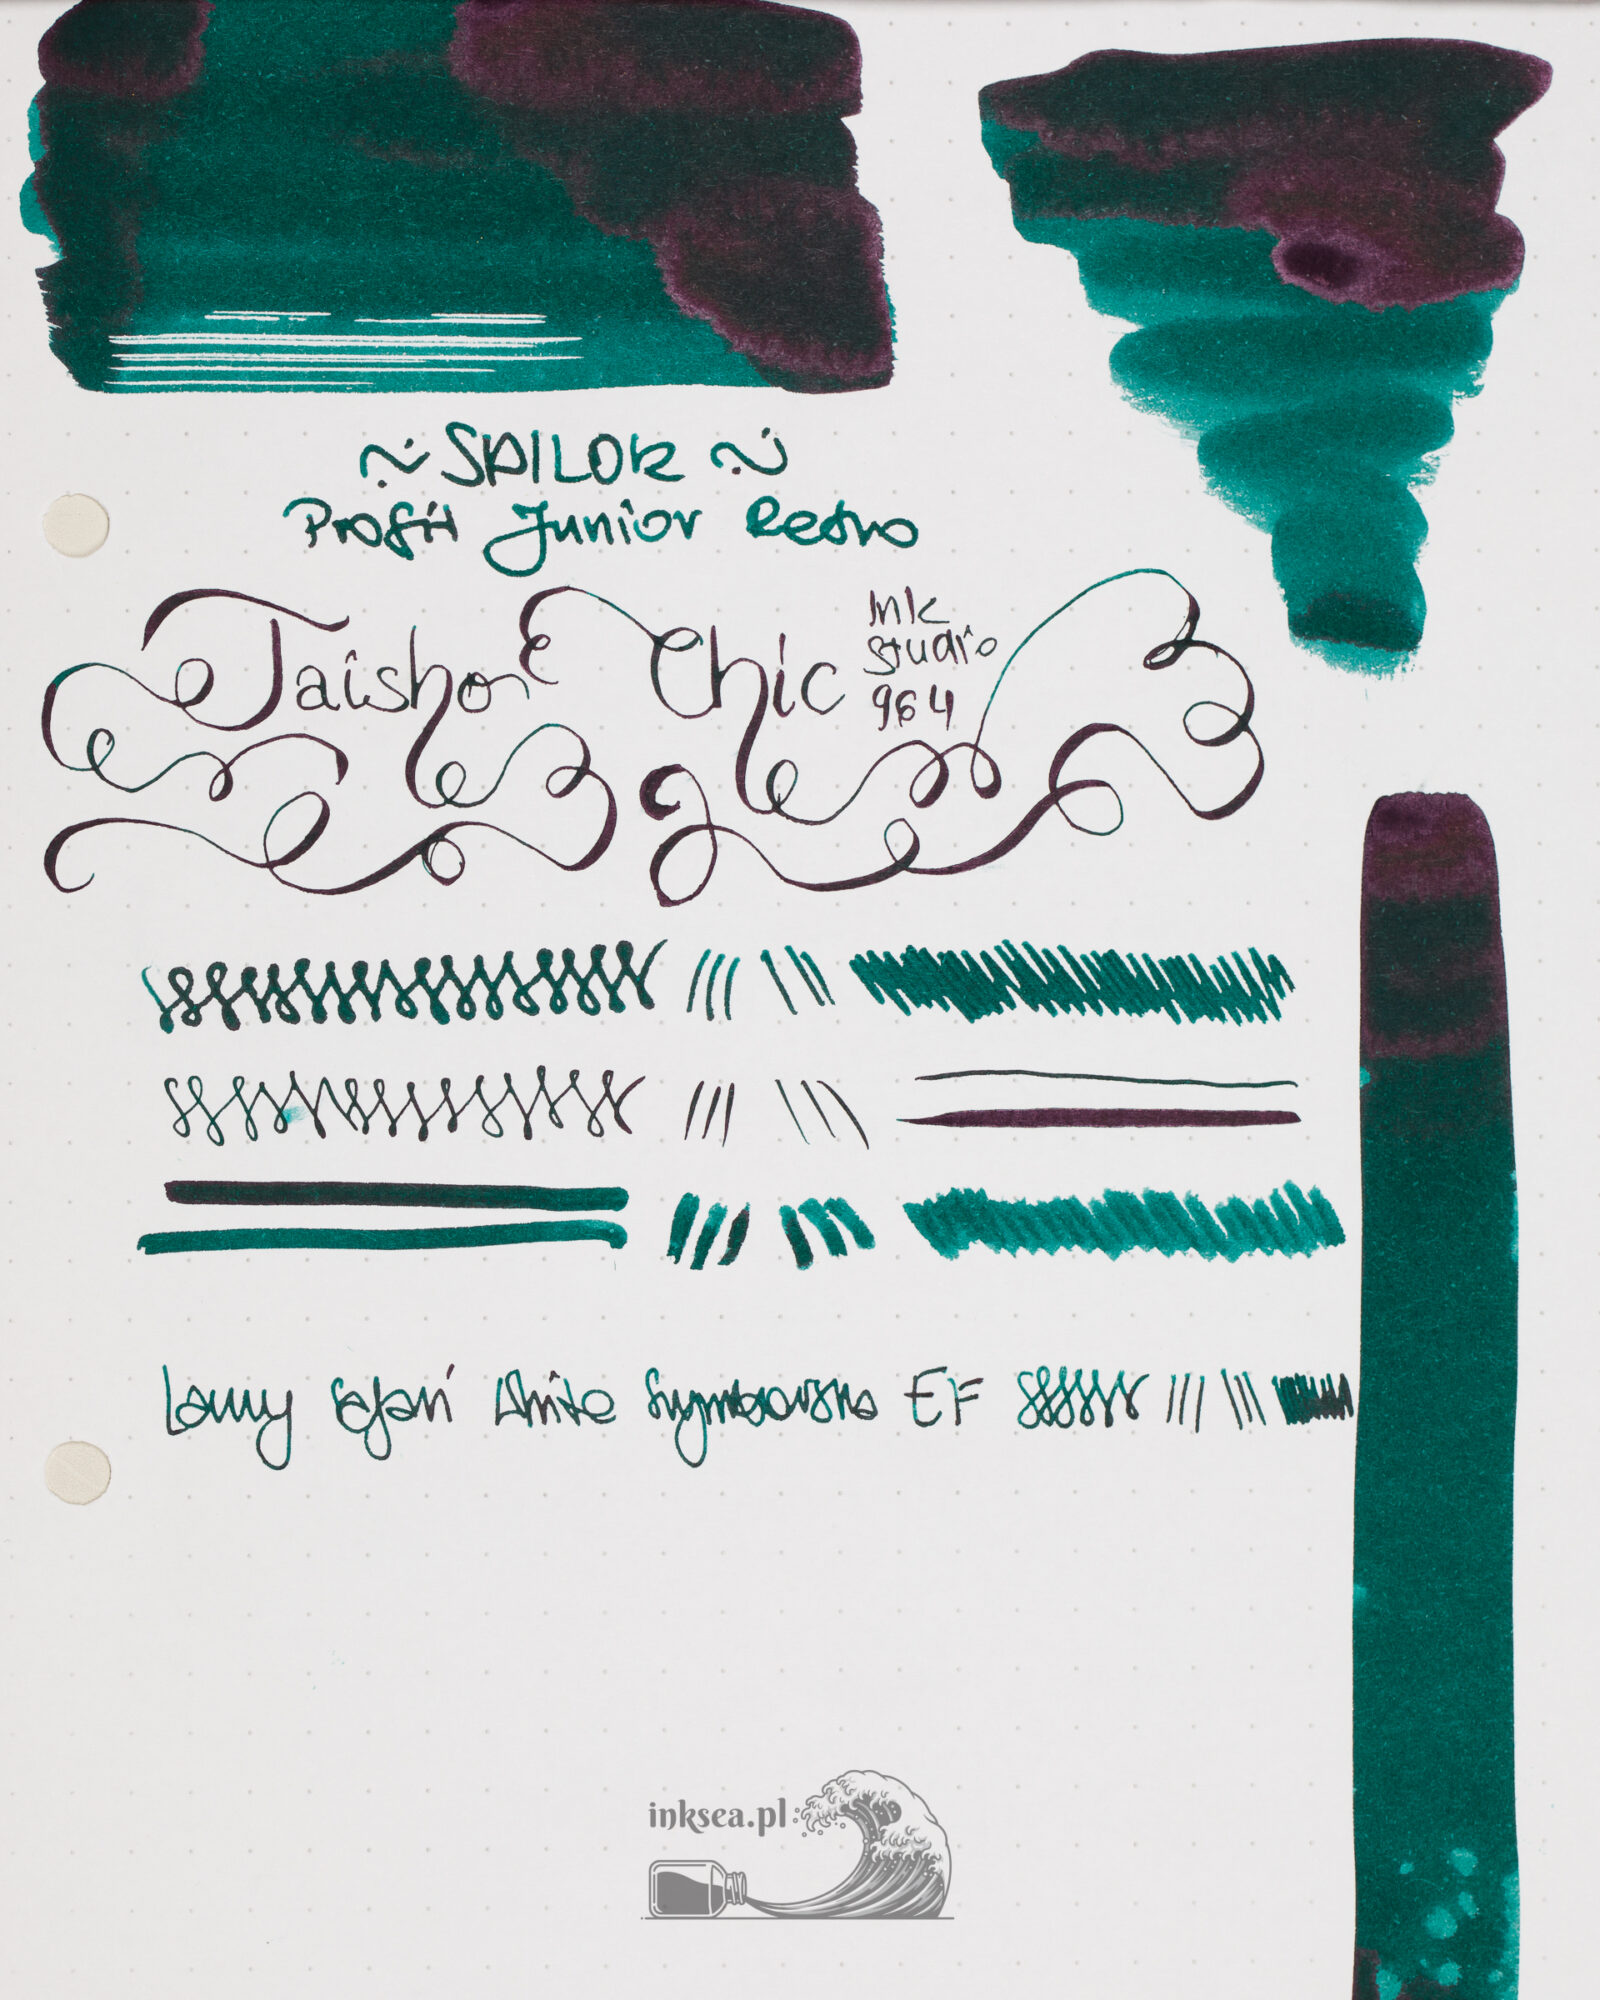 ~ SAILOR ~
Profit Junior Retro
Taisho Chic
Ink
studio
964
Lamy Safari White EF
inksea.pl